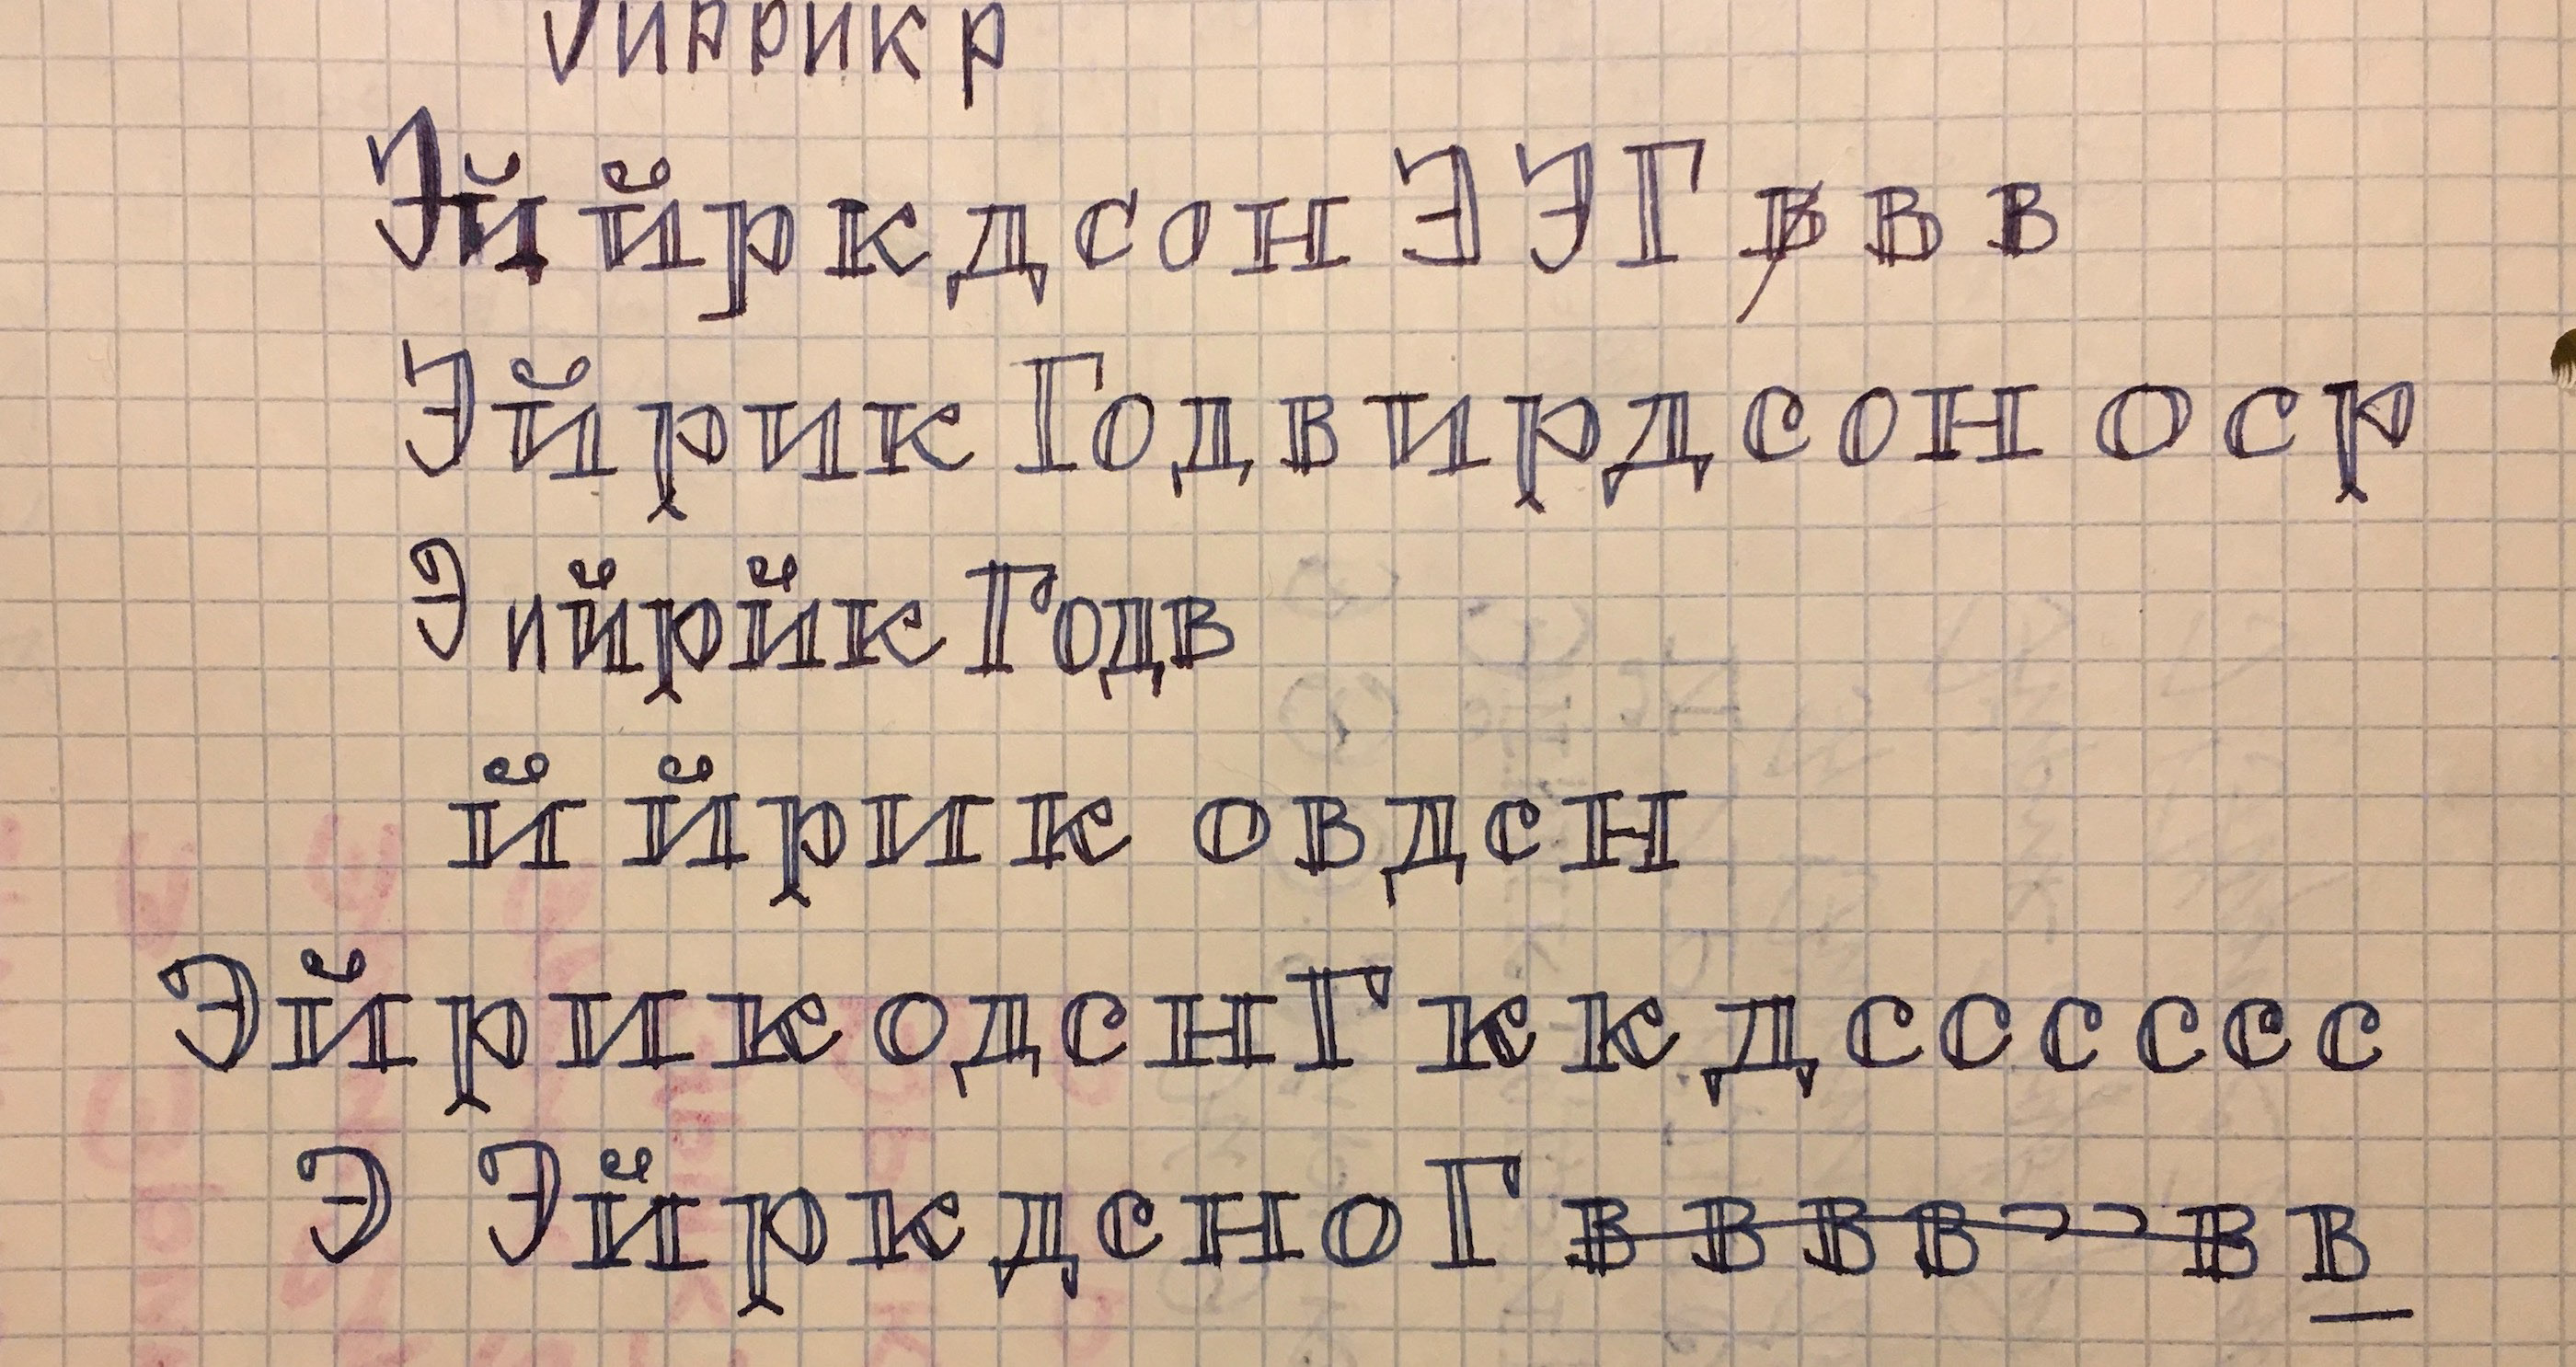 Эиррикр
Эй йркдсон Э Э Г в в в
Эйрик Годвирдсон о с р
Э ийрйк Годв
й йрик овдсн
Эйрик одснГ к к д с с с с с с
Э ЭйркдсноГ в в в в в в